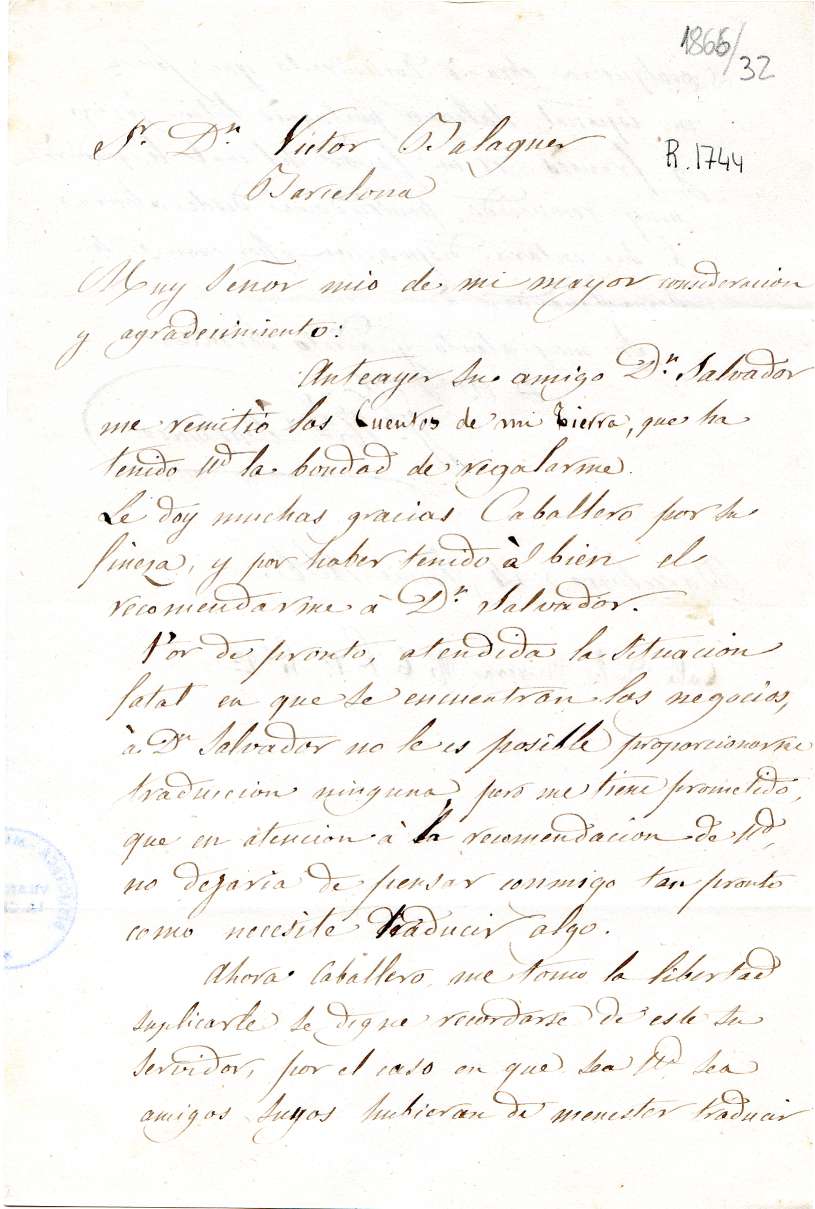 1866/32
Sr. Dn. Victor Balaguer
R.1744
Barcelona
Muy Señor mio de mi mayor consideracion
y agradecimiento:
Anteayer su amigo Dn. Salvador
me remitió los Cuentos de mi tierra, que ha
tenido Ud la bondad de regalarme.
Le doy muchas gracias Caballero por su
fineza, y por haber tenido à bien el
recomendarme à Dn. Salvador.
Por de pronto, atendida la situacion
fatal en que se encuentran los negocios,
à Dn Salvador no le es posible proporcionarme
traduccion ninguna, pero me tiene prometido,
que en atencion à la recomendacion de Ud,
no dejaria de pensar conmigo tan pronto
como necesite traducir algo.
Ahora Caballero, me tomo la libertad
suplicarle se digne recordarse de este su
servidor, por el caso en que sea Ud sea
amigos suyos hubieran de menester traducir